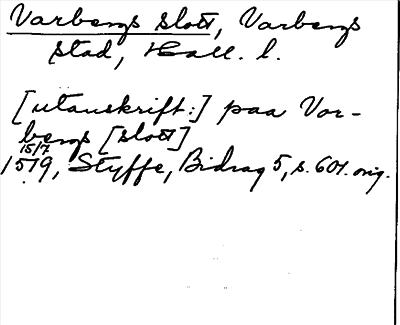 Varbergs slott, Varbergs
stad, Hall. l.
[utanskrift:] paa Var-
bergs [slott]
15/7
1519, Styffe, Bidrag 5, s. 601. orig.